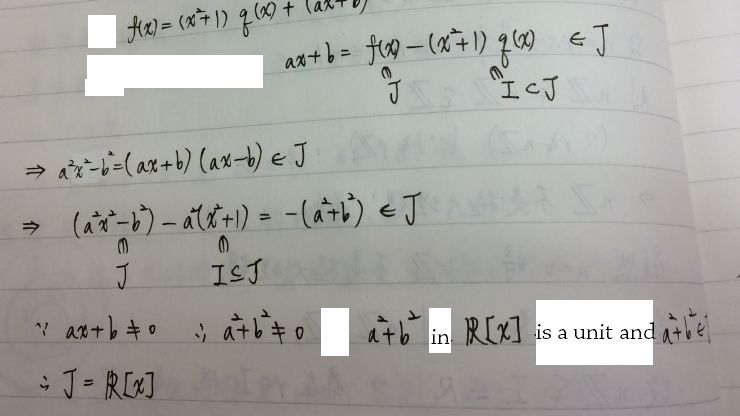 f(x) = (x²+1) q(x) + (ax+b)
ax+b = f(x) − (x²+1) q(x) ∈ J
∈ J ∈ I ⊂ J
⇒ a²x²−b² = (ax+b)(ax−b) ∈ J
⇒ (a²x²−b²) − a²(x²+1) = −(a²+b²) ∈ J
∈ J ∈ I ⊆ J
∵ ax+b ≠ 0 ∴ a²+b² ≠ 0 a²+b² in ℝ[x] is a unit and a²+b² ∈ J
∴ J = ℝ[x]